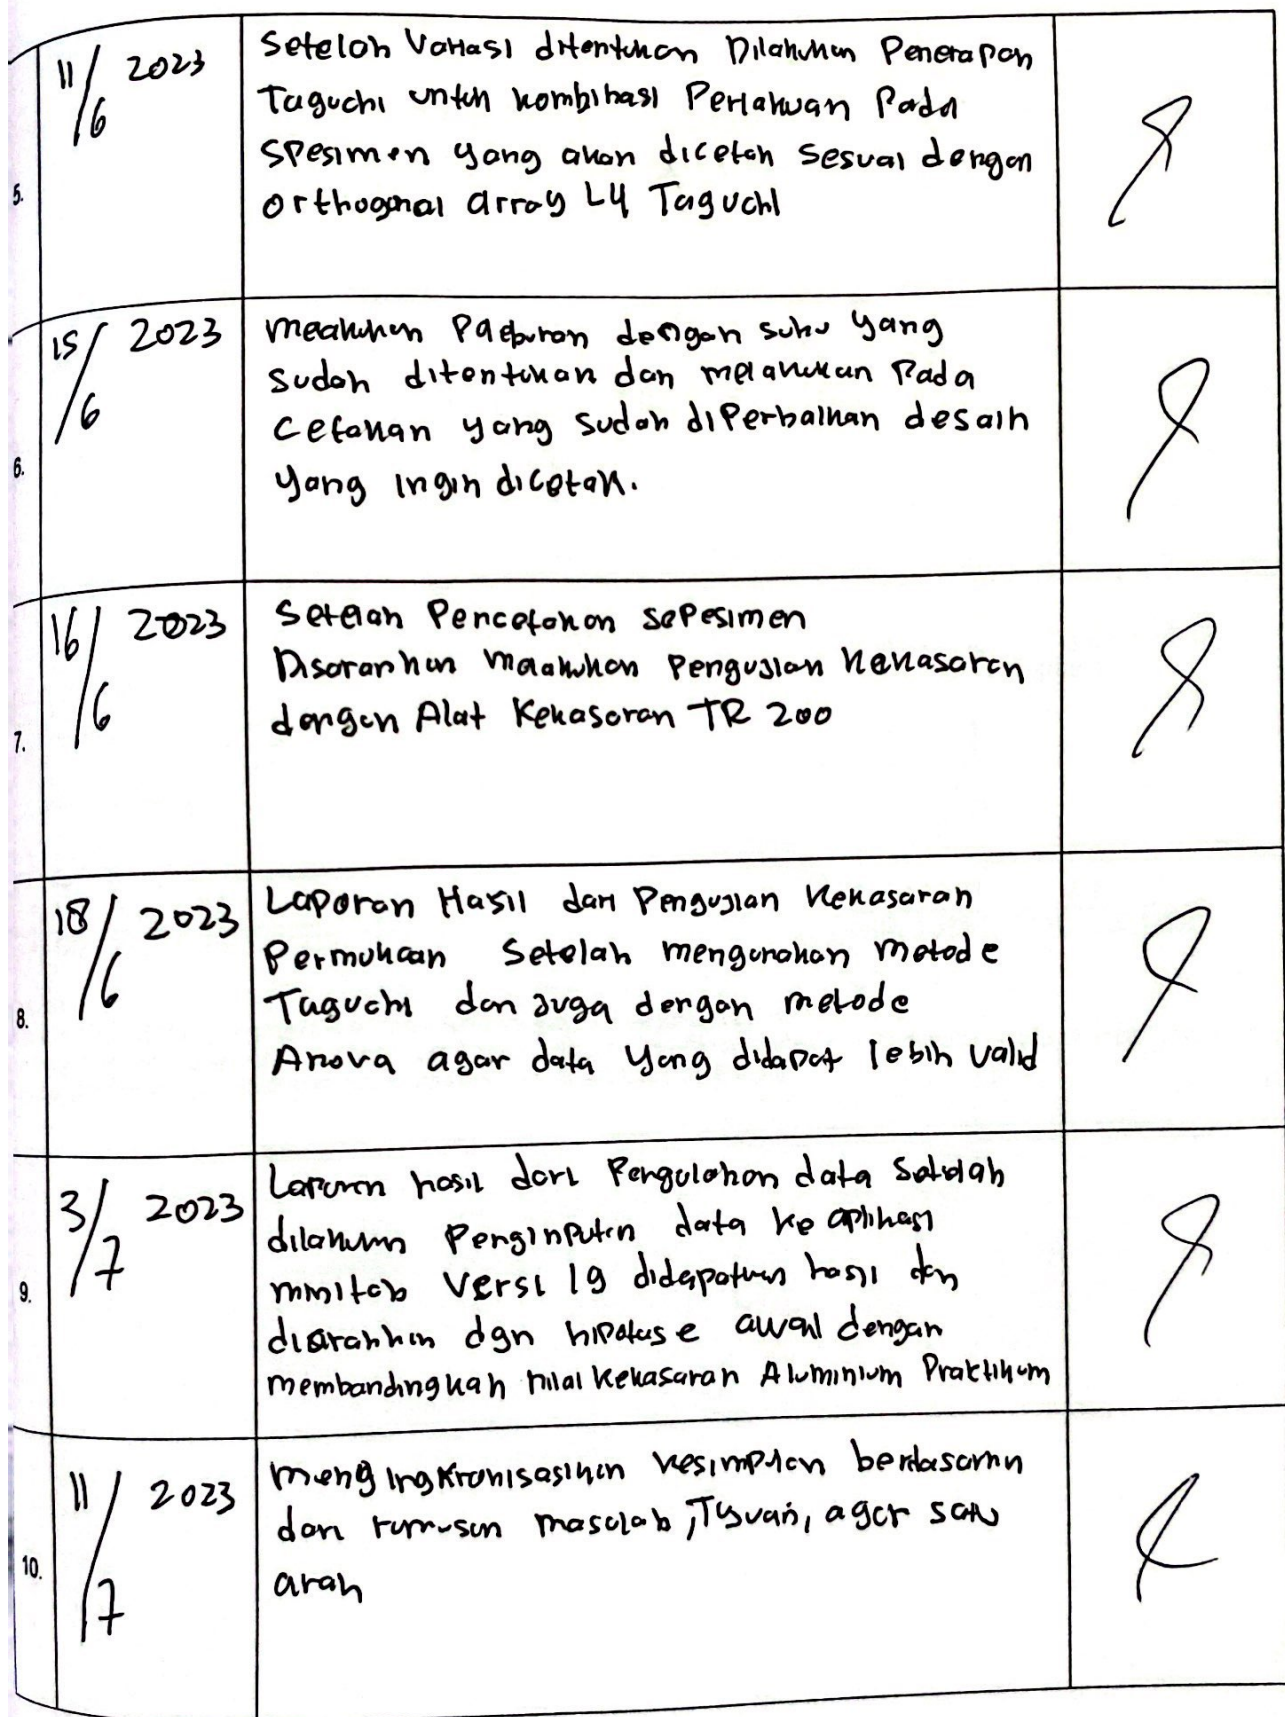 5.
11/6 2023
Setelah Variasi ditentukan Dilakukan Penerapan
Taguchi untuk kombinasi Perlakuan Pada
Spesimen yang akan dicetak Sesuai dengan
orthogonal array L4 Taguchi
6.
15/6 2023
dengan suhu yang
sudah ditentukan dan melakukan Pada
Cetakan yang sudah diPerbaikan desain
yang ingin dicetak.
7.
16/6 2023
Setelah Pencetakan sePesimen
Disarankan melakukan Pengujian Kekasaran
dengan Alat Kekasaran TR 200
8.
18/6 2023
Laporan Hasil dari Pengujian Kekasaran
Permukaan Setelah mengunakan metode
Taguchi dan juga dengan metode
Anova agar data yang didapat lebih valid
9.
3/7 2023
Laporan hasil dari Pengolahan data Setelah
dilakukan Penginputan data ke aplikasi
minitab Versi 19 didapatkan hasil dan
diarahkan dgn awal dengan
membandingkan nilai Kekasaran Aluminium Praktikum
10.
11/7 2023
kesimpulan
dari rumusan masalah, Tujuan, agar satu
arah